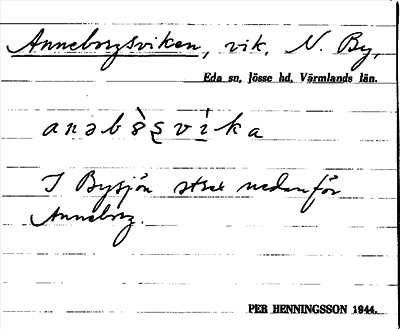 Anneborgsviken, vik, N. By,
Eda sn, Jösse hd, Värmlands län.
anəbɞ̀ʂvika
I Bysjön strax nedanför
Anneborg.
PER HENNINGSSON 1944.